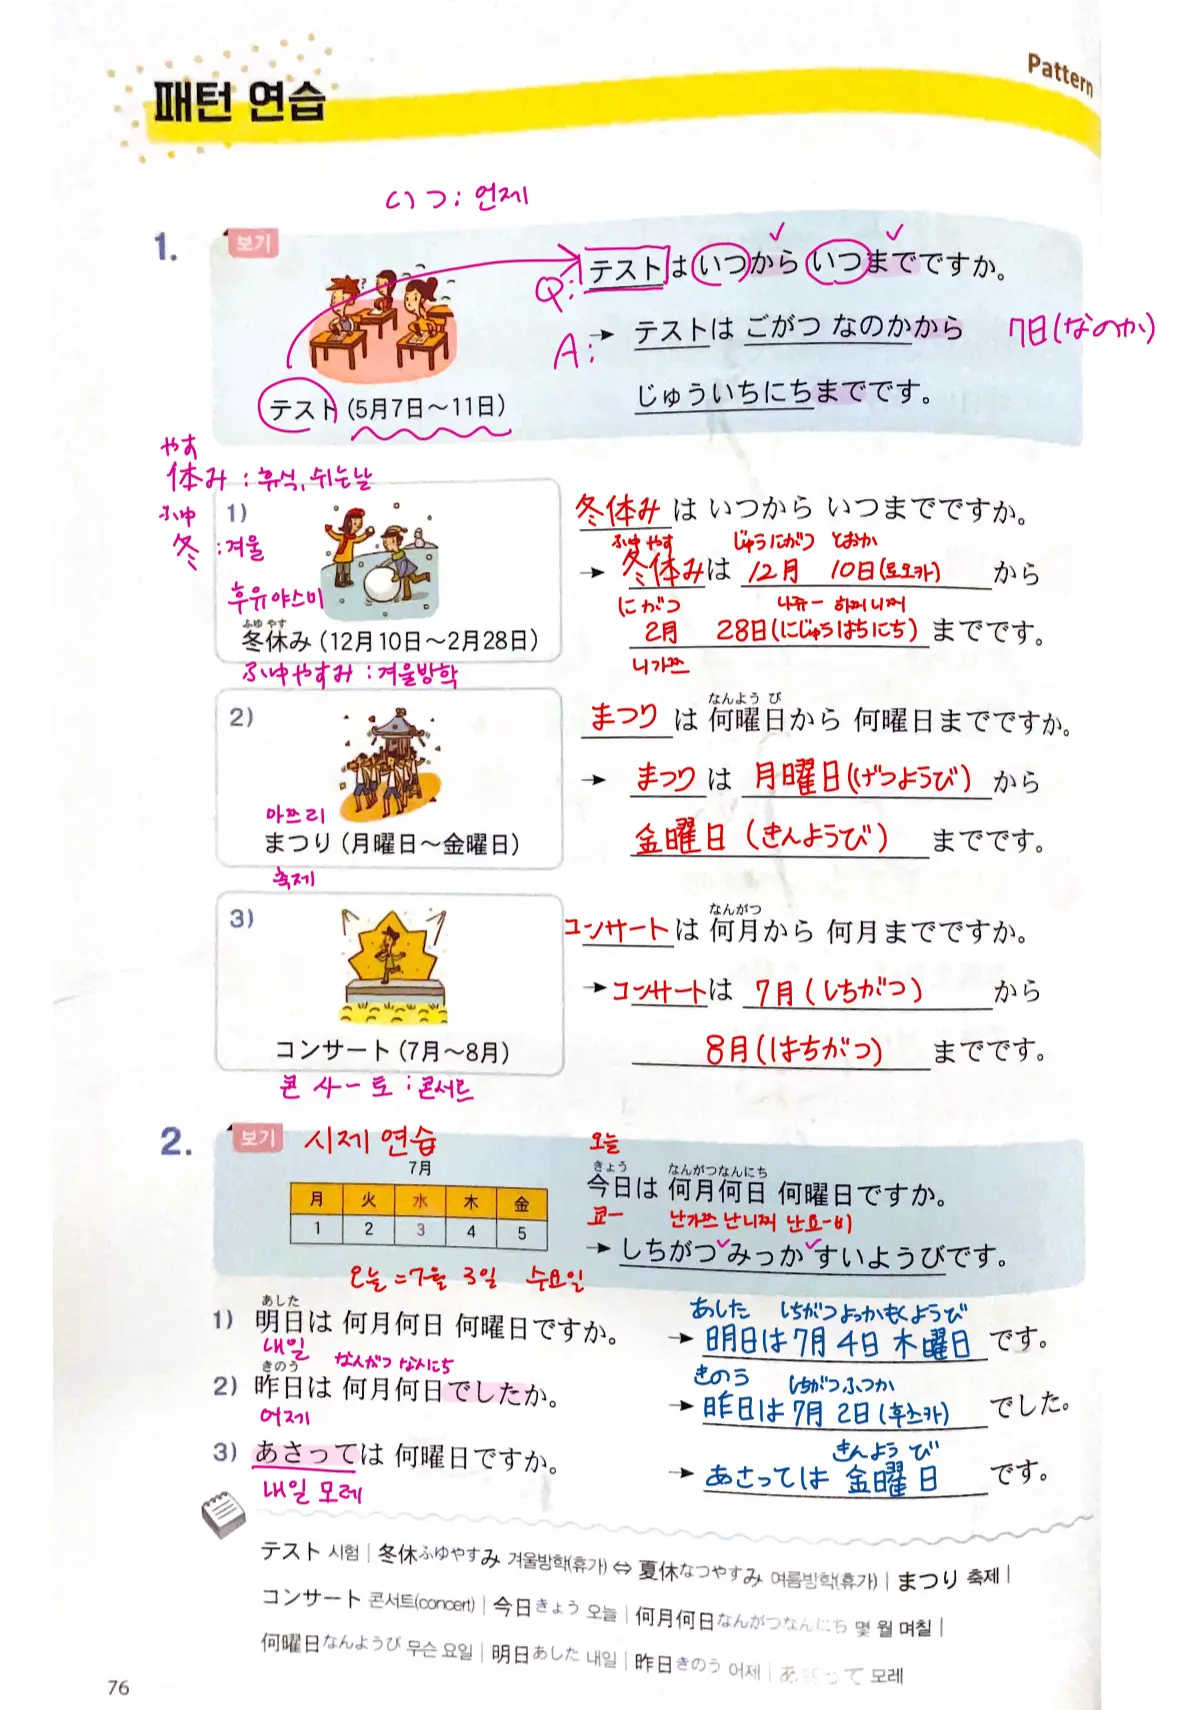 Pattern
패턴 연습
いつ : 언제
1. 보기
Q: テストは いつから いつまでですか。
A: → テストは ごがつ なのかから 7日(なのか)
じゅういちにちまでです。
テスト (5月7日～11日)
やす
休み : 휴식, 쉬는날
ふゆ
冬 : 겨울
1)
후유야스미
ふゆ やす
冬休み (12月10日～2月28日)
ふゆやすみ : 겨울방학
冬休み は いつから いつまでですか。
ふゆ やす じゅうにがつ とおか
→ 冬休みは 12月 10日(토오카) から
にがつ 니쥬ー 하찌니찌
2月 28日(にじゅうはちにち) までです。
니가쯔
2)
마쯔리
まつり (月曜日～金曜日)
축제
なんよう び
まつり は 何曜日から 何曜日までですか。
→ まつり は 月曜日(げつようび) から
金曜日 (きんようび) までです。
3)
コンサート (7月～8月)
콘 사ー토 : 콘서트
なんがつ
コンサート は 何月から 何月までですか。
→ コンサート は 7月 (しちがつ) から
8月(はちがつ) までです。
2. 보기 시제 연습
7月
月 火 水 木 金
1 2 3 4 5
오늘 = 7월 3일 수요일
오늘
きょう なんがつなんにち
今日は 何月何日 何曜日ですか。
쿄ー 난가쯔 난니찌 난요ー비
→ しちがつ みっか すいようびです。
あした
1) 明日は 何月何日 何曜日ですか。
내일
あした しちがつよっかもくようび
→ 明日は7月 4日 木曜日 です。
きのう なんがつ なんにち
2) 昨日は 何月何日でしたか。
어제
きのう しちがつふつか
→ 昨日は 7月 2日(후츠카) でした。
3) あさっては 何曜日ですか。
내일 모레
きんよう び
→ あさっては 金曜日 です。
テスト 시험 | 冬休ふゆやすみ 겨울방학(휴가) ⇔ 夏休なつやすみ 여름방학(휴가) | まつり 축제 |
コンサート 콘서트(concert) | 今日きょう 오늘 | 何月何日なんがつなんにち 몇 월 며칠 |
何曜日なんようび 무슨 요일 | 明日あした 내일 | 昨日きのう 어제 | あさって 모레
76